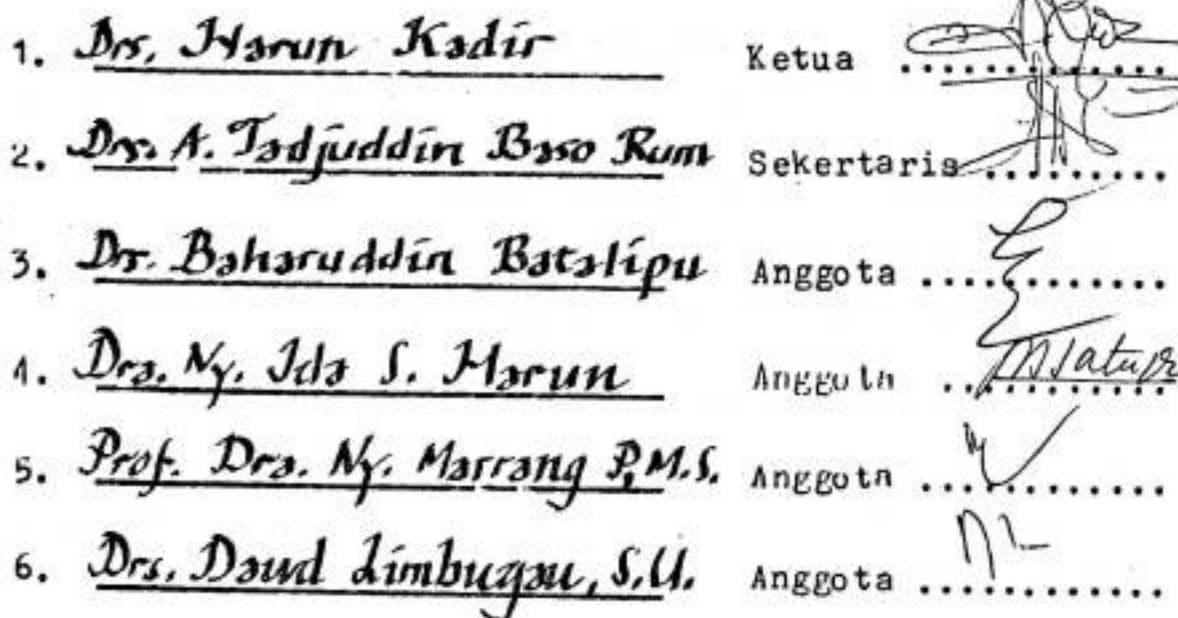 1. Drs. Harun Kadir Ketua .............
2. Drs. A. Tadjuddin Baso Rum Sekertaris .........
3. Dr. Baharuddin Batalipu Anggota ............
4. Dra. Ny. Ida S. Harun Anggota ............
5. Prof. Dra. Ny. Marrang P,M.S. Anggota ............
6. Drs. Daud Limbugau, S.U. Anggota ............